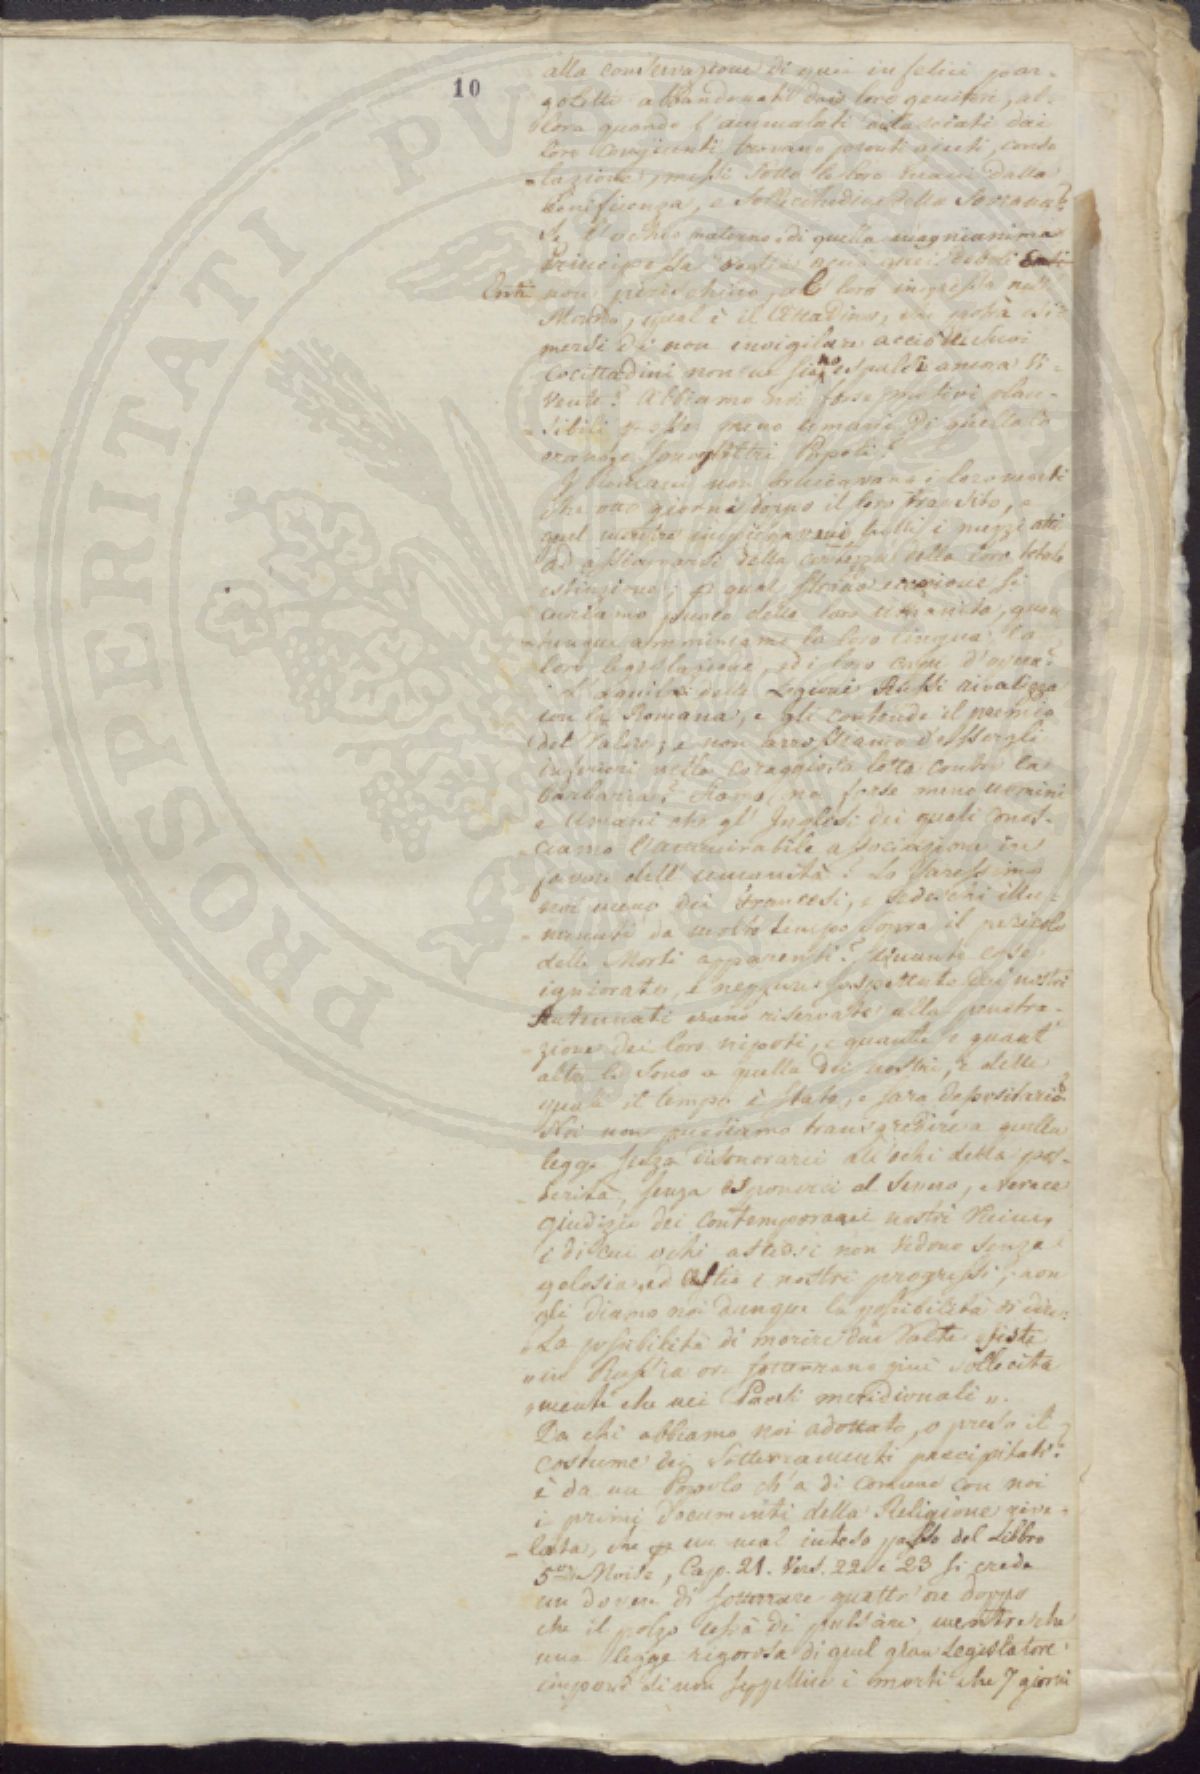 10
alla conservazione di quei infelici par-
goletti abbandonati dai loro genitori, al-
lora quando l'ammalati dai
loro congiunti trovano pronti ajuti, conso
-lazione, messi sotto le loro mani dalla
beneficenza, e sollecitudine della Sovrana?
Se l'ochio materno di quella magnianima
Principessa acciò quei deboli
Enti non perischino, al loro ingresso nel
Mondo, qual è il Cittadino, che potrà esi-
mersi di non invigilare acciò dei suoi
cocittadini non ne siano espulsi ancora vi-
vente? Abbiamo noi forse mutivi plau-
-sibili p esser meno umani di quello lo
erano, e sono gl'altri Popoli?
I Romani non bruciavano i loro morti
che otto giorni doppo il loro transito, e
quel mentre impiegavano tutti i mezzi atti
ad assicurarsi della certezza della loro totale
estinzione; p qual strana ecezione si
curiamo puoco della loro umanità, quan
-tunque ammiriamo la loro lingua, la
loro legislazione, ed i loro
l'aquila delle Legioni Russi rivalizza
con la Romana, e gli contende il premio
del Valore, e non arrossiamo d'essergli
inferiori nella coraggiosa lotta contro la
barbaria? Siamo noi forse meno uomini
e Umani che gl'Inglesi dei quali conos-
-ciamo l'ammirabile associazione in
favore dell'umanità? Lo saressimo
noi meno dei Francesi, e Tedeschi illu-
-minati da molto tempo sopra il pericolo
delle Morti apparenti? Quante cose
igniorate, e neppure sospettate dai nostri
Antennati erano riservate alla penetra-
-zione dei loro nipoti, e quante e quant'
altre lo sono a quella dei nostri, e delle
quale il tempo è stato, e sara depositario?
Noi non puossiamo transgredire a quella
legge senza disonorarci ali ochi della pos-
-terità, senza esponerci al severo, e verace
giudizio dei contemporanei nostri Vicini,
e di cui ochi astiosi non vedono senza
gelosia, ed astio i nostri progressi; non
gli diamo noi dunque la possibilità di dire:
"La possibilità di morire due Volte esiste
"in Russia ove sotterrano più sollecita
"mente che nei Paesi meridionali".
Da chi abbiamo noi adottato, o preso il
costume di Sotterramenti precipitati?
è da un Popolo ch'a di comune con noi
i primi Documenti della Religione rive-
-lata, che p un mal inteso passo del Libbro
5to di Moisè, Cap. 21. Vers. 22 e 23 si crede
un dovere di sotterrare quattr'ore doppo
che il polzo cessa di pulsare, mentre che
una legge rigorosa di quel gran Legislatore
impone di non seppellire i morti che 7 giorni